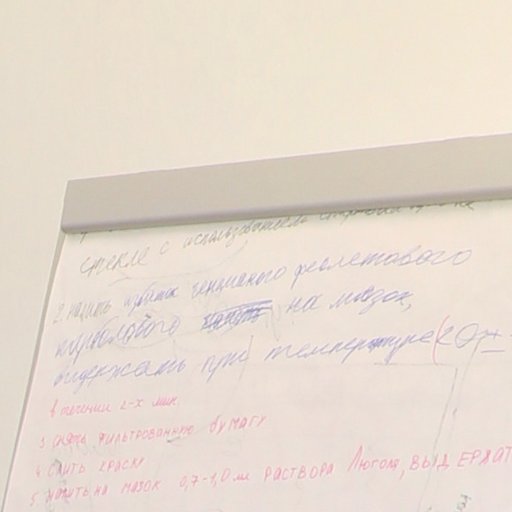 стекле с использованием спиртовой
2. налить избыток генцианого феолетового
карболового на мазок,
выдержать при температуре (20±
в течении 2-х мин.
3 снять фильтрованную бумагу
4. слить краску
5. налить на мазок 0,7-1,0 мл раствора Люголя, выдержат